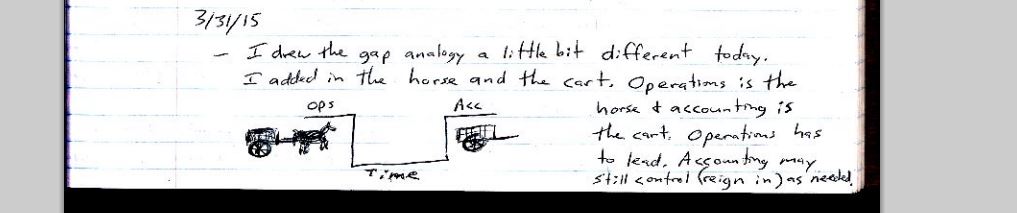 3/31/15
- I drew the gap analogy a little bit different today.
I added in the horse and the cart. Operations is the
horse & accounting is
the cart. Operations has
to lead. Accounting may
still control (reign in) as needed.
Ops
Acc
Time